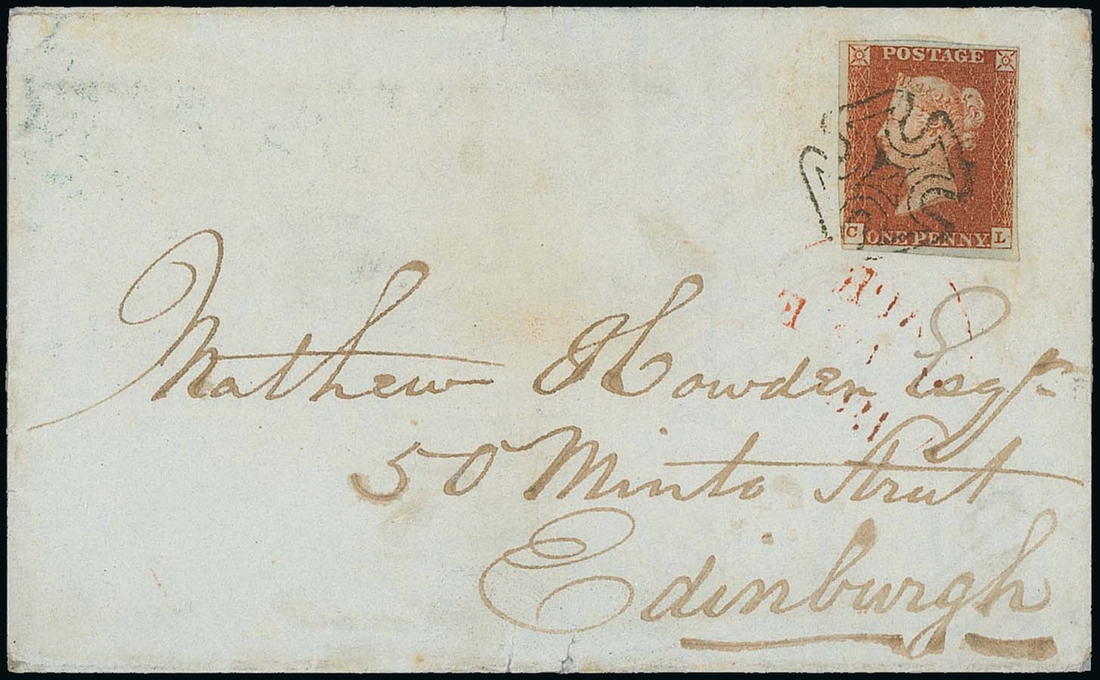 POSTAGE
C ONE PENNY L
Mathew Howden Esqr
50 Minto Street
Edinburgh